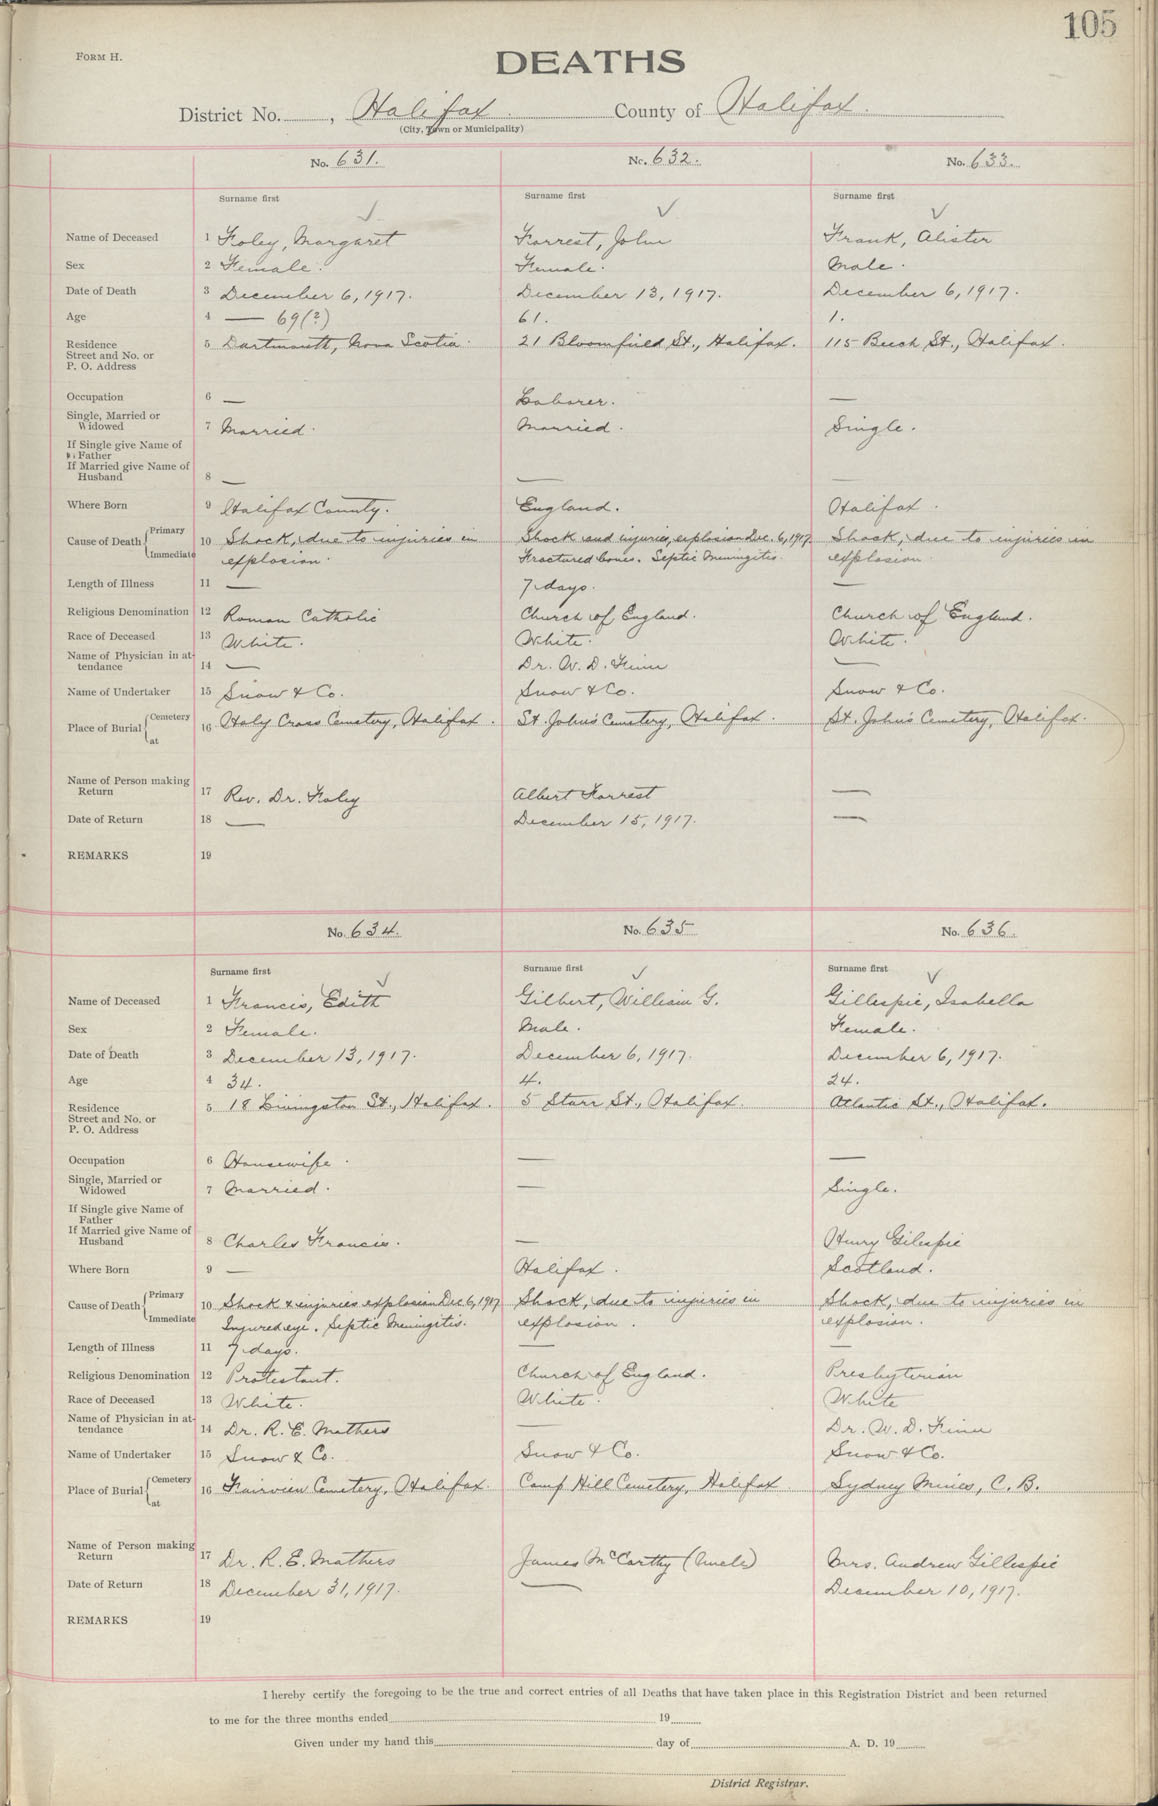 105
FORM H.
DEATHS
District No. , Halifax. County of Halifax.
(City, Town or Municipality)
No. 631. No. 632. No. 633.
Surname first Surname first Surname first
Name of Deceased 1 Foley, Margaret Forrest, John Frank, Alister
Sex 2 Female. Female. Male.
Date of Death 3 December 6, 1917. December 13, 1917. December 6, 1917.
Age 4 — 69(?) 61. 1.
Residence 5 Dartmouth, Nova Scotia. 21 Bloomfield St., Halifax. 115 Beech St., Halifax.
Street and No. or
P. O. Address
Occupation 6 — Laborer. —
Single, Married or
Widowed 7 Married. Married. Single.
If Single give Name of
Father
If Married give Name of
Husband 8 — — —
Where Born 9 Halifax County. England. Halifax.
Cause of Death Primary 10 Shock, due to injuries in Shock and injuries, explosion Dec. 6, 1917 Shock, due to injuries in
Immediate explosion. Fractured bones. Septic Meningitis. explosion
Length of Illness 11 — 7 days. —
Religious Denomination 12 Roman Catholic Church of England. Church of England.
Race of Deceased 13 White. White. White.
Name of Physician in at-
tendance 14 — Dr. W. D. Finn —
Name of Undertaker 15 Snow & Co. Snow & Co. Snow & Co.
Place of Burial Cemetery 16 Holy Cross Cemetery, Halifax. St. John's Cemetery, Halifax. St. John's Cemetery, Halifax.
at
Name of Person making
Return 17 Rev. Dr. Foley Albert Forrest —
Date of Return 18 — December 15, 1917. —
REMARKS 19
No. 634. No. 635 No. 636.
Surname first Surname first Surname first
Name of Deceased 1 Francis, Edith Gilbert, William G. Gillespie, Isabella
Sex 2 Female. Male. Female.
Date of Death 3 December 13, 1917. December 6, 1917. December 6, 1917.
Age 4 34. 4. 24.
Residence 5 18 Livingston St., Halifax. 5 Starr St., Halifax. Atlantic St., Halifax.
Street and No. or
P. O. Address
Occupation 6 Housewife. — —
Single, Married or
Widowed 7 Married. — Single.
If Single give Name of
Father
If Married give Name of
Husband 8 Charles Francis. — Henry Gilespie
Where Born 9 — Halifax. Scotland.
Cause of Death Primary 10 Shock & injuries explosion Dec. 6, 1917 Shock, due to injuries in Shock, due to injuries in
Immediate Injured eye. Septic Meningitis. explosion. explosion.
Length of Illness 11 7 days. — —
Religious Denomination 12 Protestant. Church of England. Presbyterian
Race of Deceased 13 White. White. White
Name of Physician in at-
tendance 14 Dr. R. E. Mathers — Dr. W. D. Finn
Name of Undertaker 15 Snow & Co. Snow & Co. Snow & Co.
Place of Burial Cemetery 16 Fairview Cemetery, Halifax. Camp Hill Cemetery, Halifax Sydney Mines, C. B.
at
Name of Person making
Return 17 Dr. R. E. Mathers James McCarthy (Uncle) Mrs. Andrew Gillespie
Date of Return 18 December 31, 1917. — December 10, 1917.
REMARKS 19
I hereby certify the foregoing to be the true and correct entries of all Deaths that have taken place in this Registration District and been returned
to me for the three months ended 19
Given under my hand this day of A. D. 19
District Registrar.